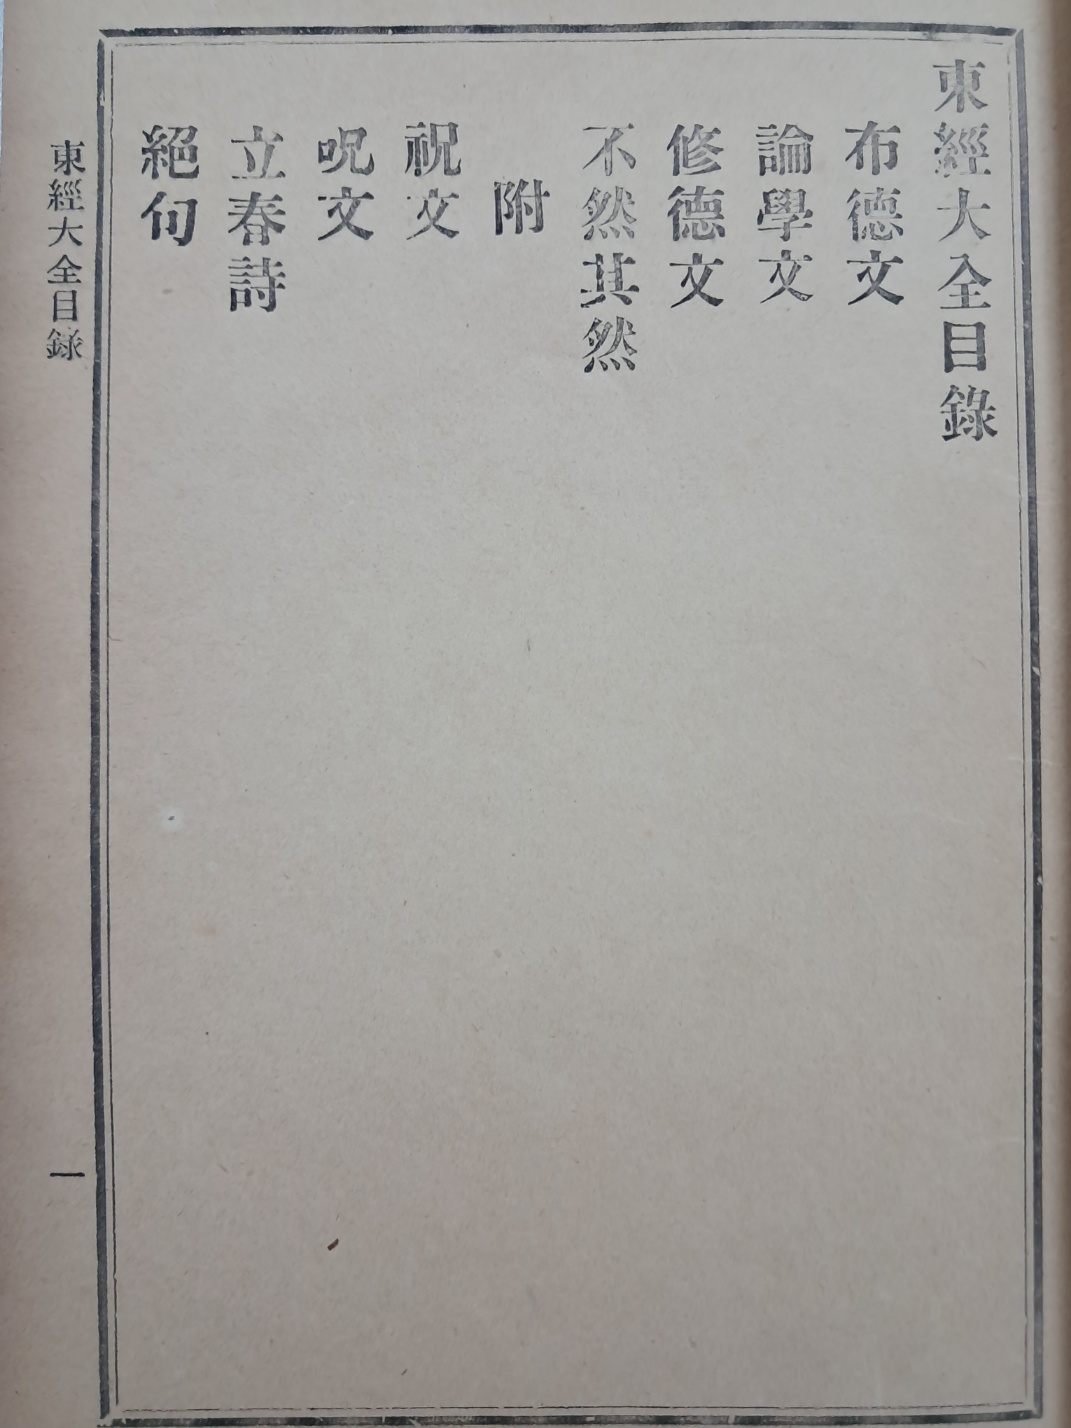 東經大全目錄
布德文
論學文
修德文
不然其然
附
祝文
呪文
立春詩
絕句
東經大全目錄
一